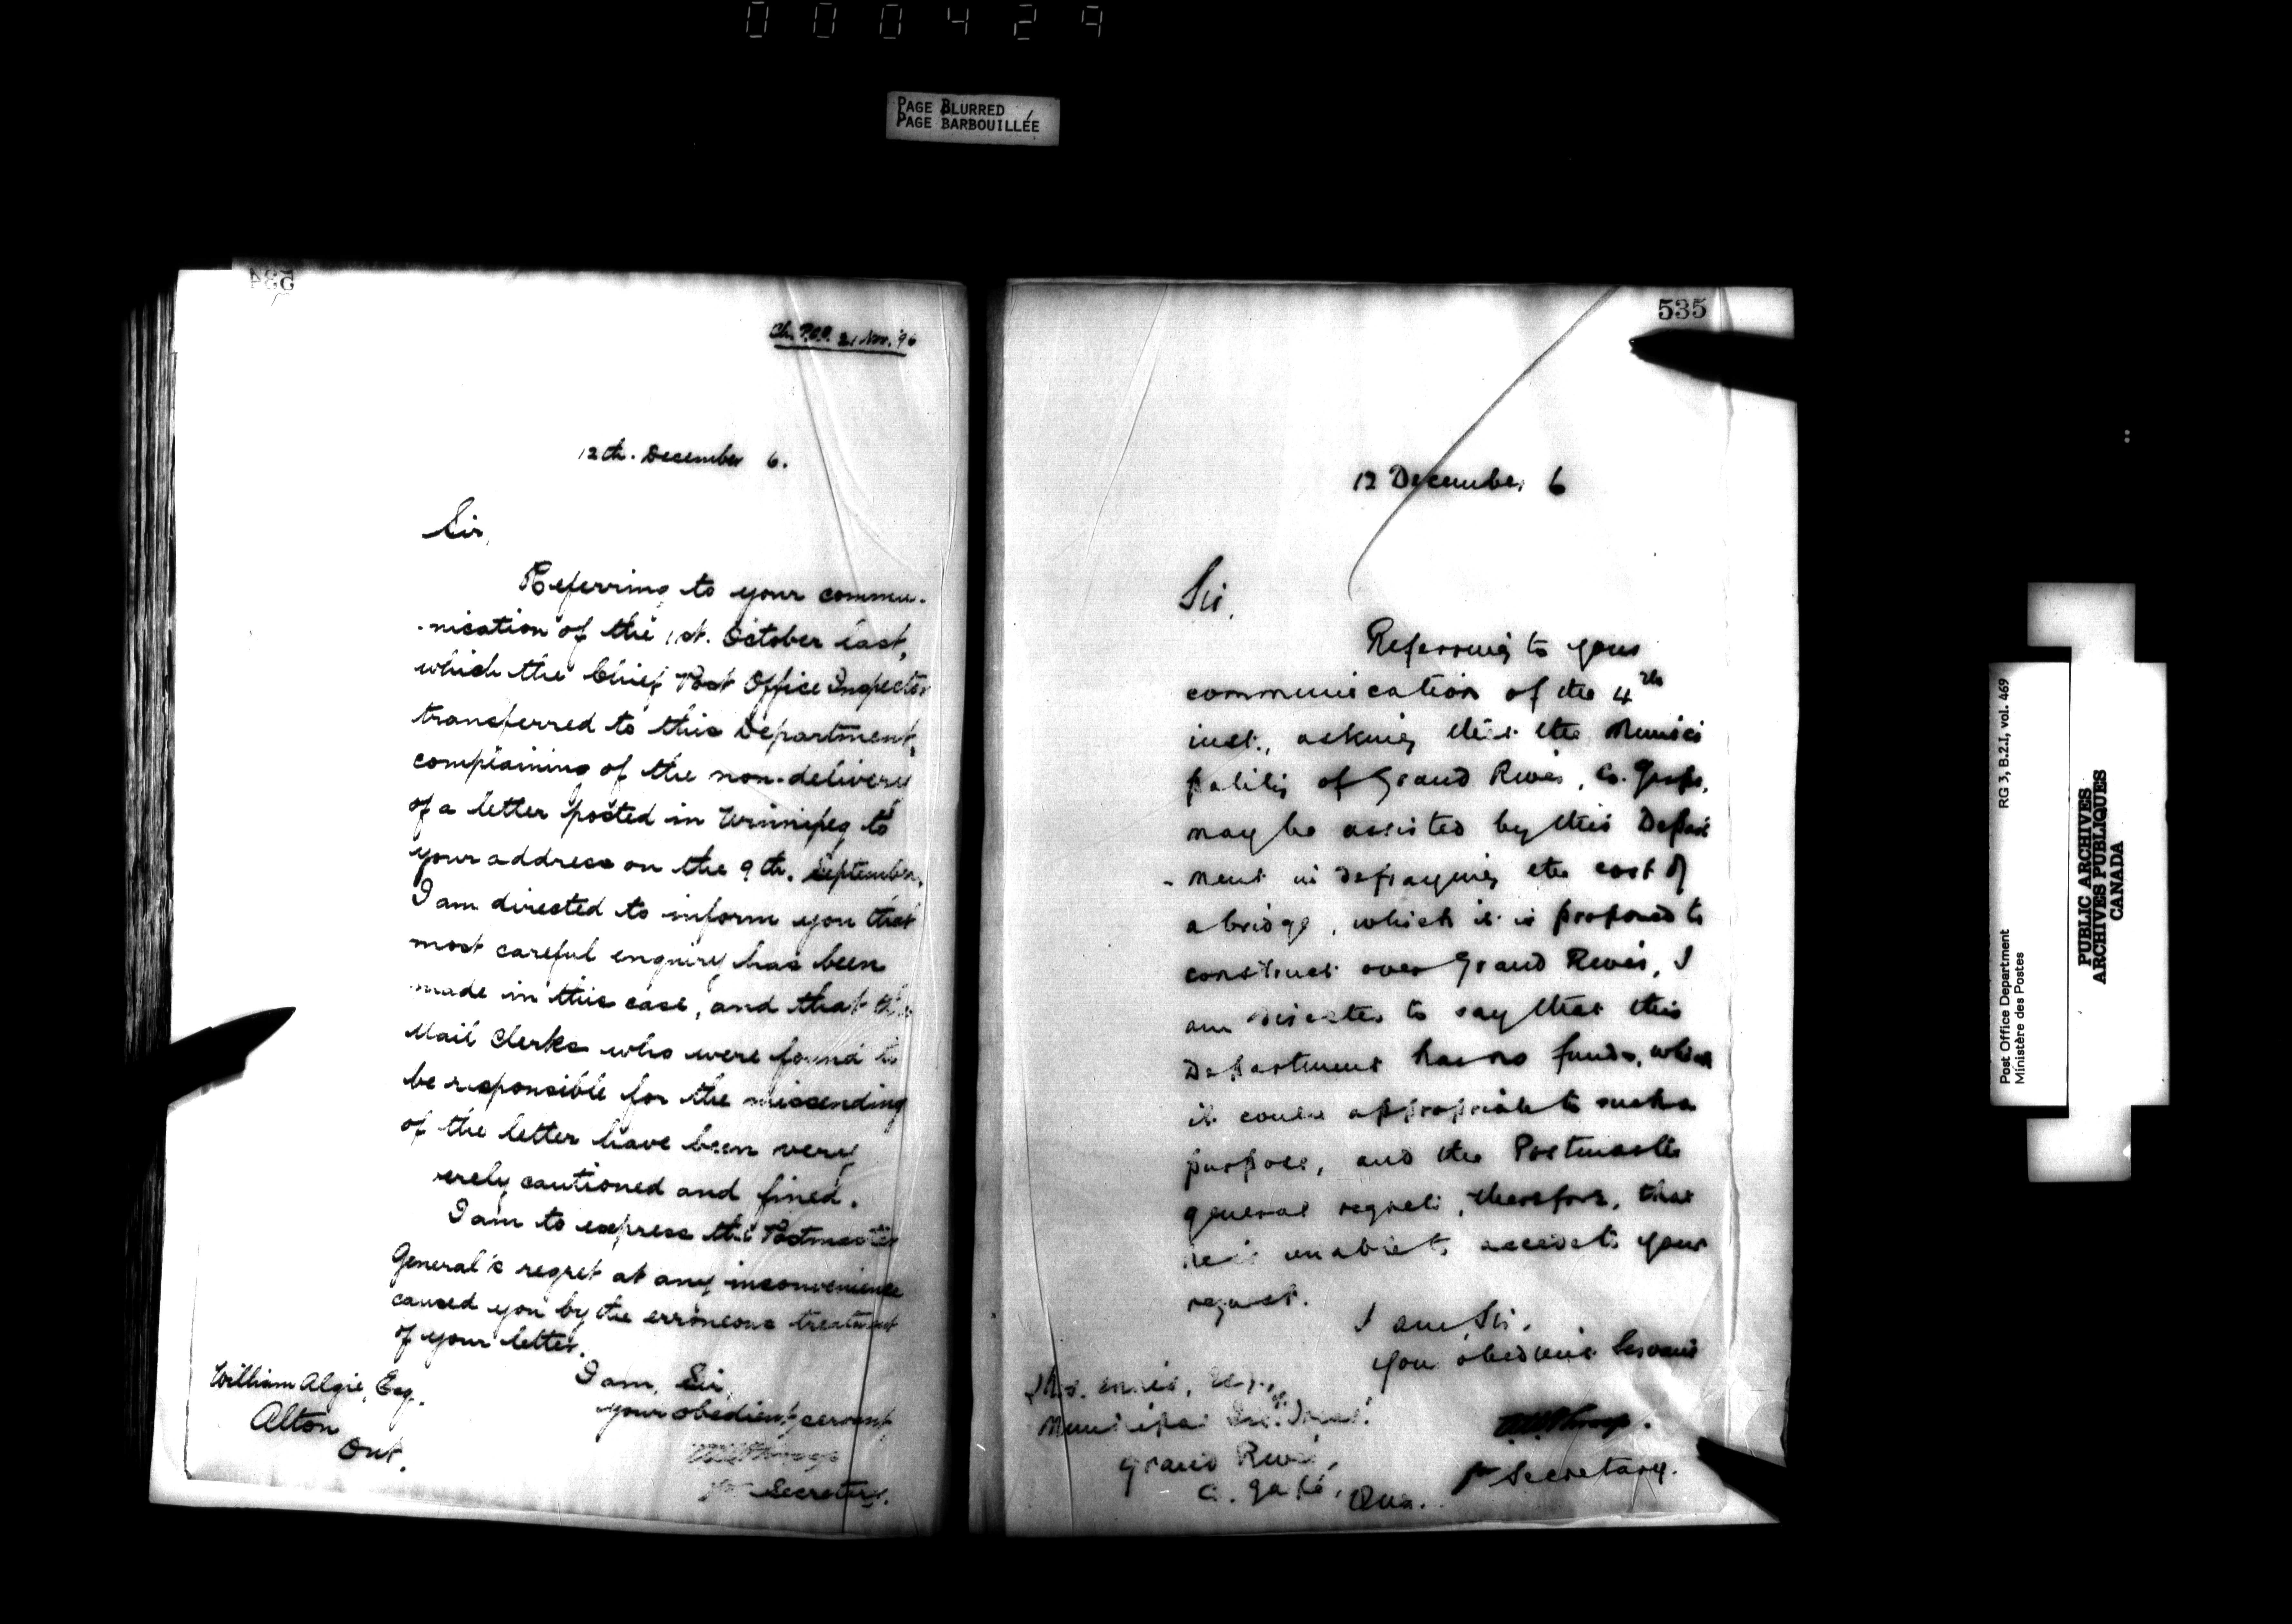 000429
PAGE BLURRED
PAGE BARBOUILLÉE
534
Ch. P.O.I. 21 Nov. '96
12th. December 6.
Sir,
Referring to your commu-
-nication of the 1st. October last,
which the Chief Post Office Inspector
transferred to this Department,
complaining of the non-delivery
of a letter posted in Winnipeg to
your address on the 9th. September,
I am directed to inform you that
most careful enquiry has been
made in this case, and that the
Mail Clerks who were found to
be responsible for the missending
of the letter have been very
verely cautioned and fined.
I am to express the Postmaster
General's regret at any inconvenience
caused you by the erroneous treatment
of your letter.
I am, Sir,
your obedient servant,
for Secretary.
William Algie, Esq.
Alton
Ont.
535
12 December 6
Sir,
Referring to your
communication of the 4th
inst., asking that the Munici
pality of Grand River, Co. Gaspé,
may be assisted by this Depart
- ment in defraying the cost of
a bridge, which it is proposed to
construct over Grand River, I
am directed to say that this
Department has no funds, which
it could appropriate to such a
purpose, and the Postmaster
General regrets, therefore, that
he is unable to accede to your
request.
I am, Sir,
Your obedient Servant
for Secretary.
Municipal Sec.
Grand River,
Co. Gaspé, Que.
Post Office Department RG 3, B.2.I, vol. 469
Ministère des Postes
PUBLIC ARCHIVES
ARCHIVES PUBLIQUES
CANADA